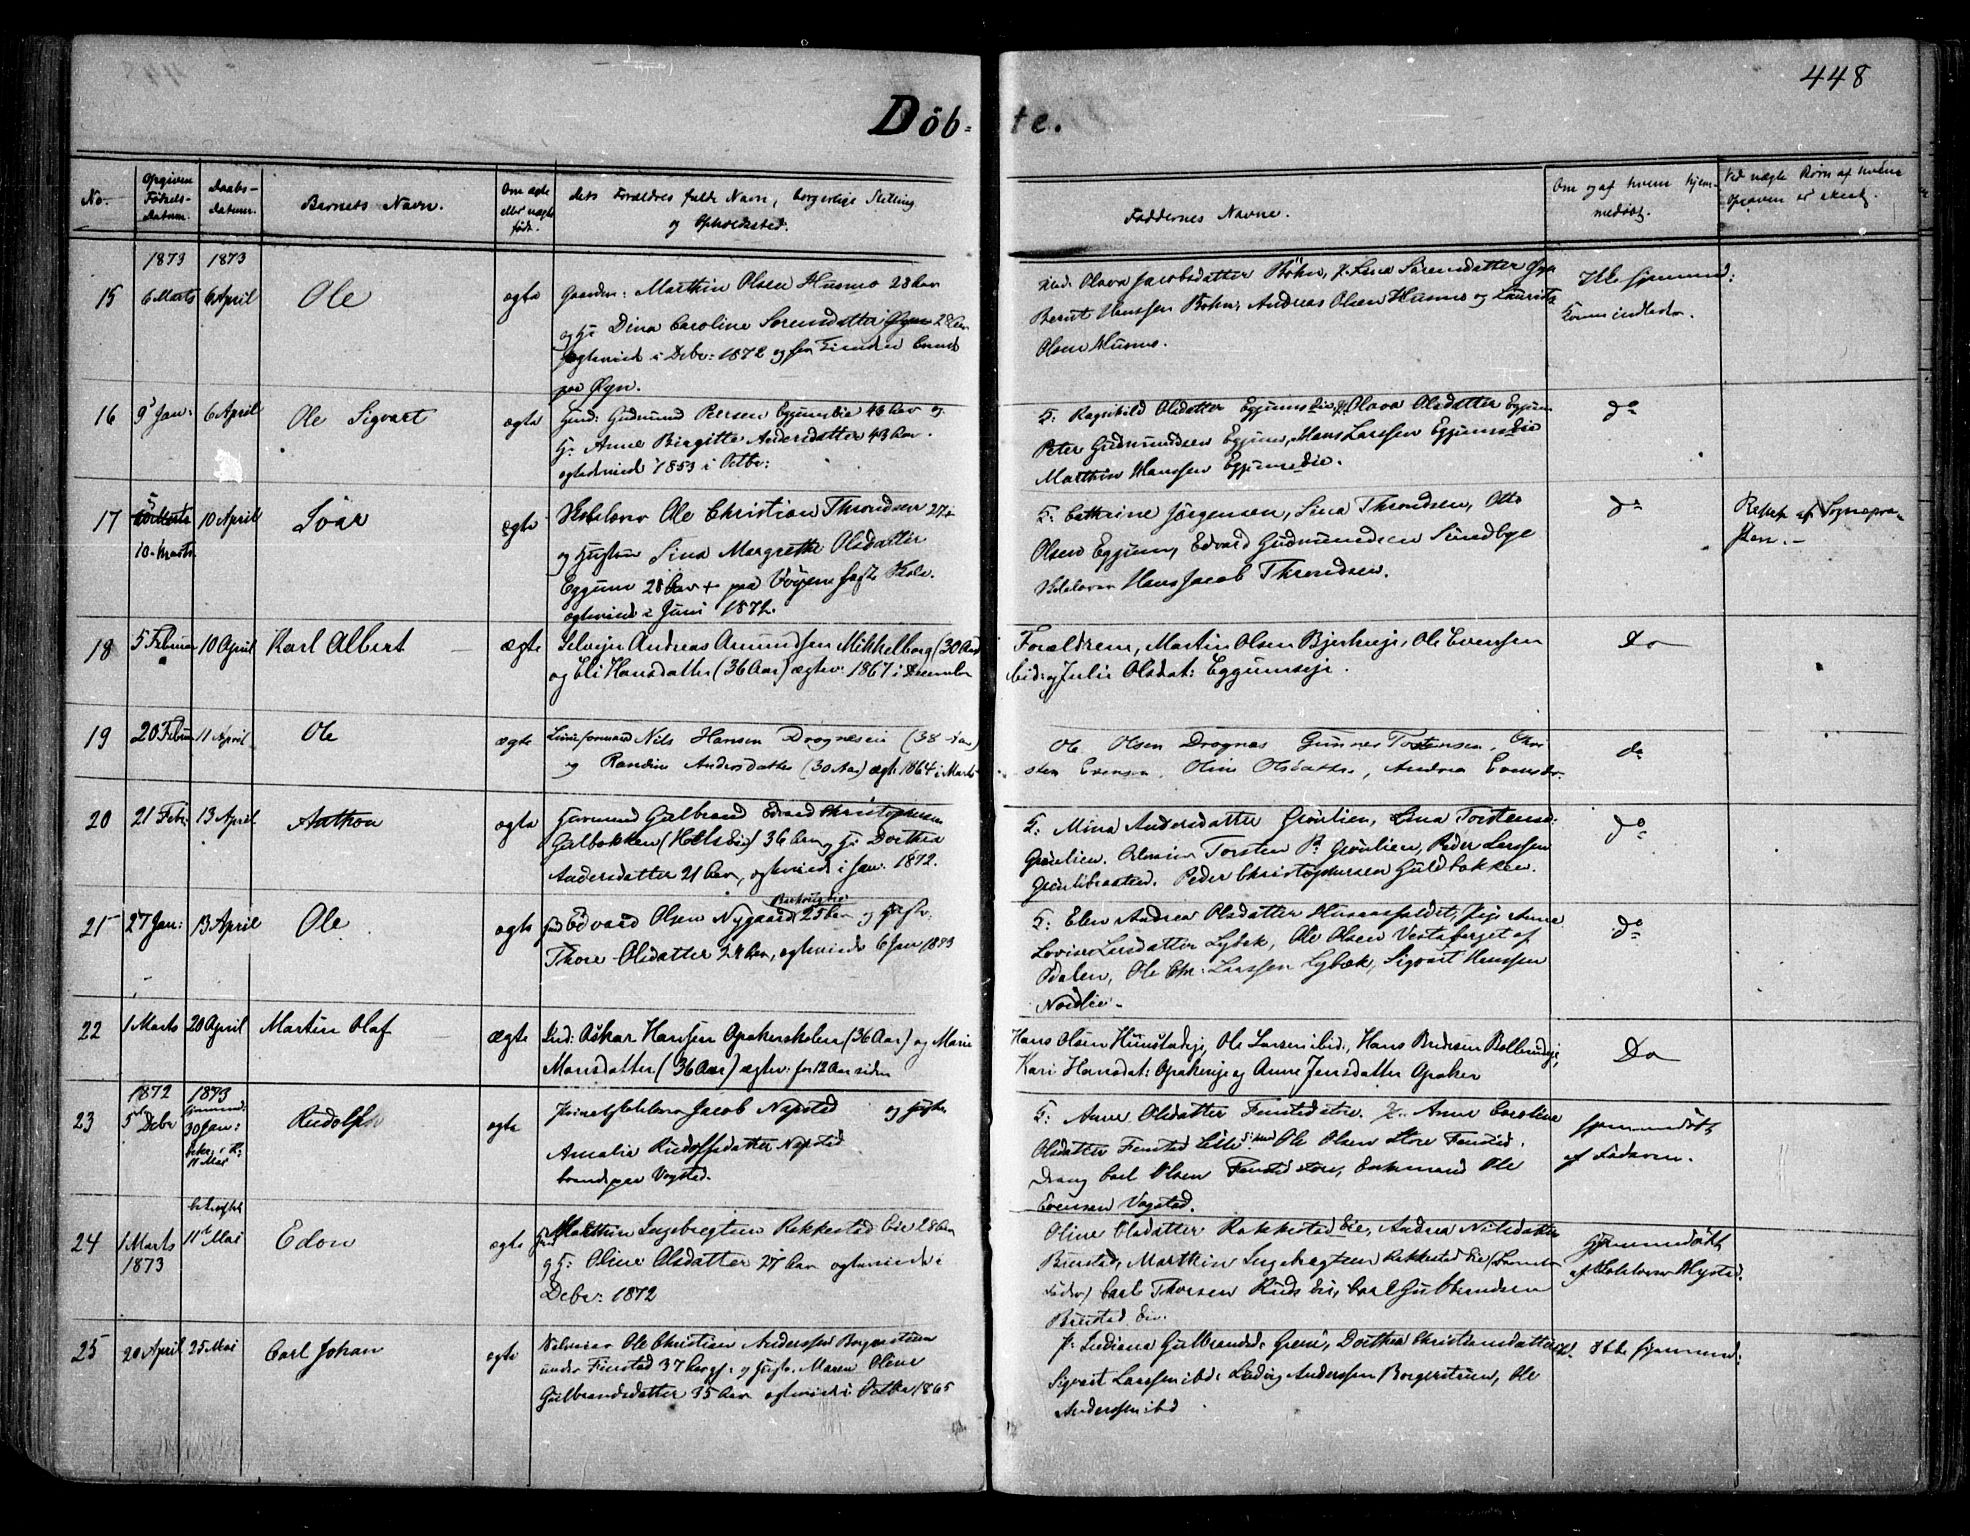 448
Döb- te.
No. Opgiven Födsels-Datum. Daabs-datum. Barnets Navn. Om ægte eller uægte født. dets Forældres fulde Navn, borgerlige Stilling og Opholdssted. Faddernes Navne. Om og af hvem hjemmedøbt. Ved uægte Børn af hvem Opgaven er skeet.
1873 1873
15 6 Marts 6 April Ole ægte Gaardm: Marthin Olsen Husmo 28 Aar
og H: Dina Caroline Sorensdatter 28 Aar
ægteviede i Debr: 1872 og
paa Øyn.
Olava Jacobsdatter Böhn, P. Lena Sørensdatter Øyn
Bernt Hanssen Bøhn, Andreas Olsen Husmo og Laurits
Olsen Husmo.
Ikke hjemmed:
16 9 Jan: 6 April Ole Sigvart ægte Husm: Gudmund Persen Eggumseie 43 Aar og
H: Anne Birgitte Andersdatter 43 Aar.
ægteviede 1853 i Octbr:
F: Ragnhild Olsdatter Eggumseie, P. Olava Olsdatter Eggum
Peter Gudmundsen Eggum, Hans Larssen Eggumseie
Marthin Hanssen Eggumseie.
do
17 10 Marts 10 April Ivar ægte Skolelærer Ole Christian Throndsen 27
og Hustru Lina Margrethe Olsdatter
Eggum 28 Aar paa Vøyen faste Skole.
ægteviede i Juni 1872.
F: Cathrine Jørgensen, Lina Throndsen, Otto
Olsen Eggum, Edvard Gudmundsen Sundbye
Skolelærer Hans Jacob Throndsen.
do
af Sognepræsten.
18 5 Februar 10 April Karl Albert ægte Selvejer Andreas Amundsen Mikkelborg (30 Aar)
og Eli Hansdatter (36 Aar) ægtev: 1867 i December
Forældrene, Martin Olsen Bjerkeeje, Ole Evensen
ibid: og Julie Olsdat: Eggumseje.
Do
19 20 Februar 11 April Ole ægte Nils Hansen Drognæseie (38 Aar)
og Randine Andersdatter (30 Aar) ægtv: 1864 i Marts
Ole Olsen Drognæs Gunner Torstensen, Thorsten
Evensen, Oline Olsdatter, Andrea Evensdr.
do
20 21 Febr: 13 April Anthon ægte Gaardmand Gulbrand Edvard Christophersen
Gulbakken (Holsbie) 36 Aar, og H: Dorthea
Andersdatter 21 Aar, ægteviede i Jan. 1872.
F: Mina Andersdatter Grönlien, Lina Torstensd:
Grönlien, Torsten P. Grönlien, Peder Larssen
Grönlibraaten. Peder Christophersen Guldbakken.
do
21 27 Jan: 13 April Ole ægte Edvard Olsen Nygaard 25 Aar og Hustr:
Thore Olsdatter 24 Aar, ægteviede 6 Jan 1873
F: Elen Andrea Olsdatter Husaasfaldet, Pige Anne
Lovise Larsdatter Lybæk, Ole Olsen Vestaberget af
Odalen, Ole Chr. Larssen Lybæk, Sigvart Hanssen
Nordlie.
do
22 1 Marts 20 April Martin Olaf ægte Ind: Askar Hansen Opakerskolen (36 Aar) og Marie
Monsdatter (36 Aar) ægtev: for 12 Aar siden
Hans Olsen Hunstadeje, Ole Larsen ibid:, Hans Bredesen Bollerudeje,
Kari Hansdat: Opakereje og Anne Jensdatter Opaker
Do
1872 1873
23 5 Debr 30 Jan: 11 Mai Rudolph ægte Jacob Napstad og Hustr:
Amalie Rudolfsdatter Napstad
boende paa Vogstad.
F: Anne Olsdatter Fenstadstre. P. Anne Caroline
Olsdatter Fenstad Lille Ole Olsen Store Fenstad.
Dreng Carl Olsen Fenstad store, Enkemand Ole
Evensen Vogstad.
Hjemmedöbt
af Faderen.
bekræftet
24 1 Marts 1873 11te Mai Edon ægte Marthin Ingebregtsen Rakkestad Eie 28 Aar
og H: Oline Olsdatter 27 Aar ægteviede i
Debr: 1872
Oline Olsdatter Rakkestad Eie, Andrea Nilsdatter
Brustad, Marthin Ingebregtsen Rakkestad Eie (Barnets
Fader) Carl Thorsen Ruds Eie, Carl Gulbrandsen
Brustad Eie.
Hjemmedöbt
af Skolelærer Mystad.
25 20 April 25 Mai Carl Johan ægte Selveier Ole Christian Anderssen Borgerstuen
under Finstad 37 Aar og Hustr. Maren Oline
Gulbrandsdatter 35 Aar ægteviede i Octbr 1865
P. Indiana Gulbrandsd. Grene, Dorthea Christiansdatter
Sigvart Larssen ibd: Ludvig Anderssen Borgerstuen, Ole
Anderssen ibid
Ikke hjemmed: